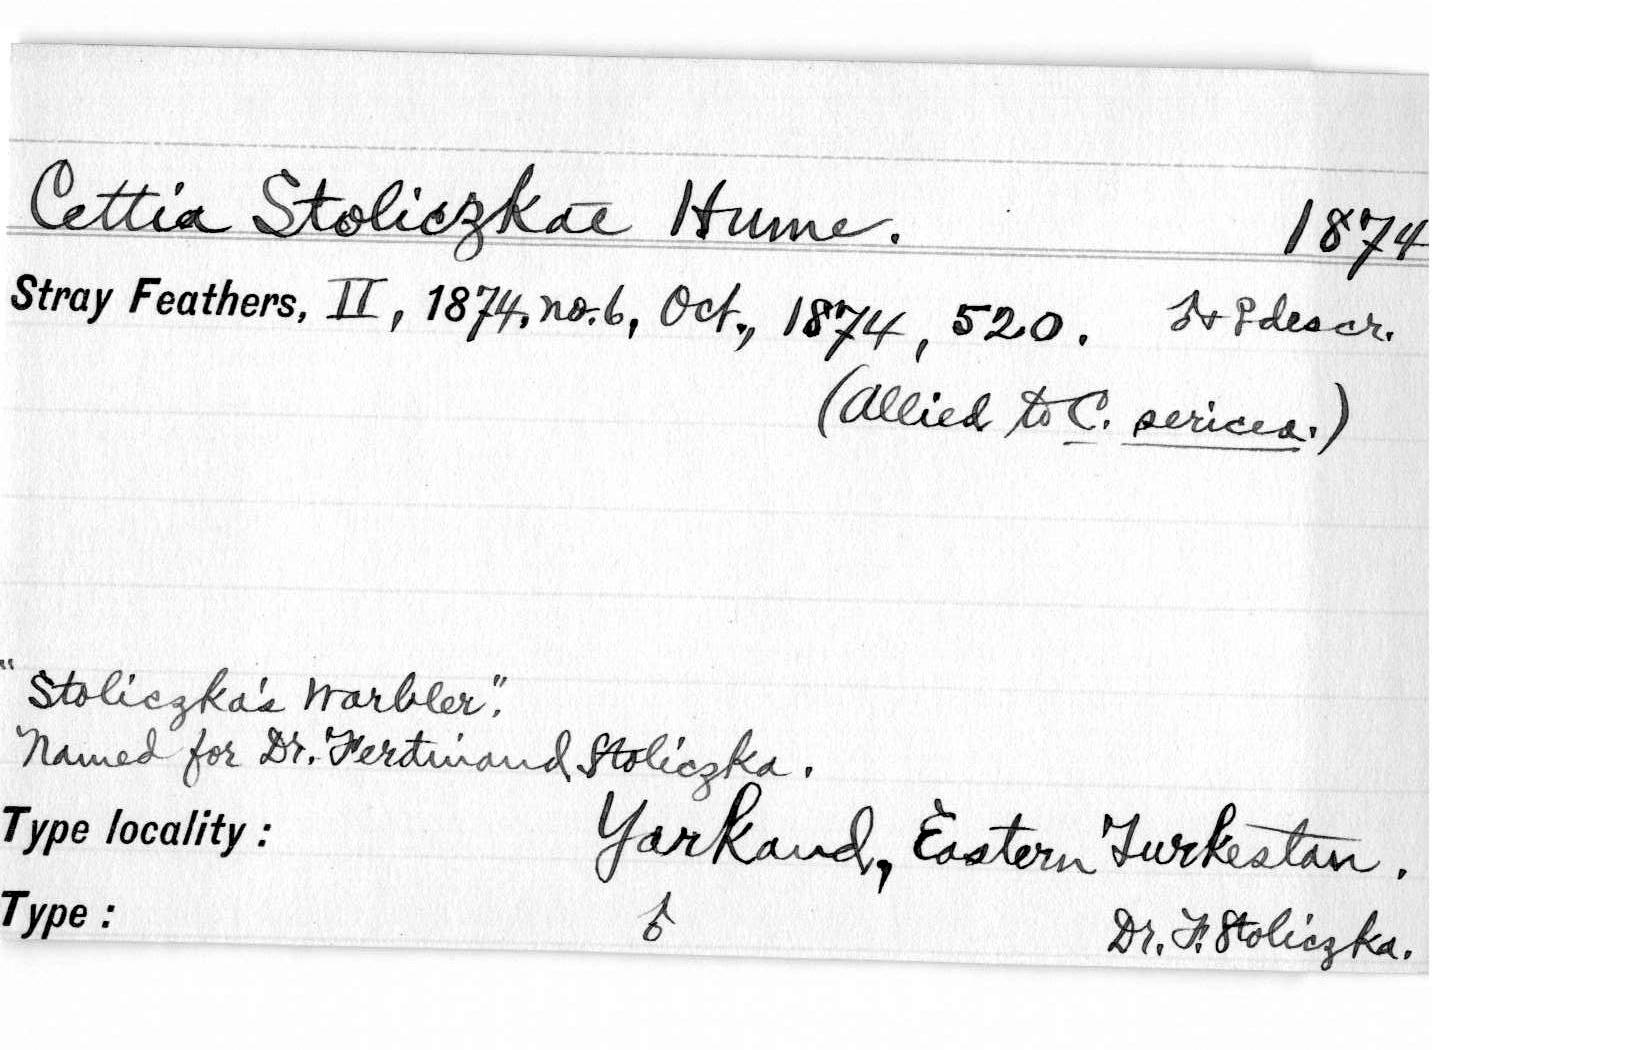 Cettia Stoliczkae Hume. 1874
Stray Feathers, II, 1874, no. 6, Oct., 1874, 520. ♂ + ♀ descr.
(Allied to C. sericea.)
"Stoliczka's Warbler".
Named for Dr. Ferdinand Stoliczka.
Type locality: Yarkand, Eastern Turkestan.
Type: ♂ Dr. F. Stoliczka.